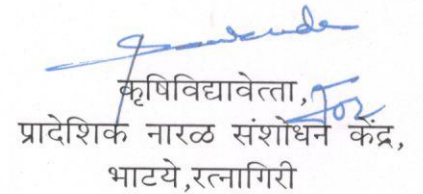 कृषिविद्यावेत्ता,
For
प्रादेशिक नारळ संशोधन केंद्र,
भाटये,रत्नागिरी